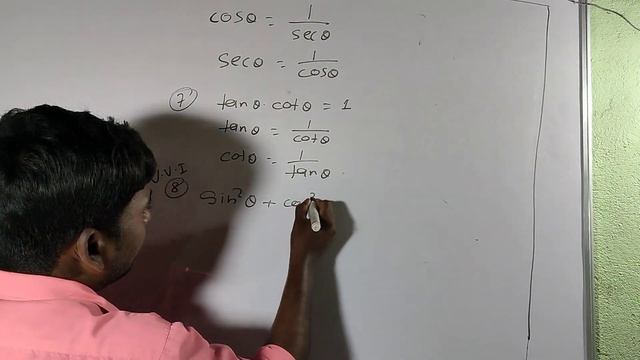 cosθ = 1/secθ
secθ = 1/cosθ
7 tanθ · cotθ = 1
tanθ = 1/cotθ
cotθ = 1/tanθ
V.V.I
8 sin²θ + cos²